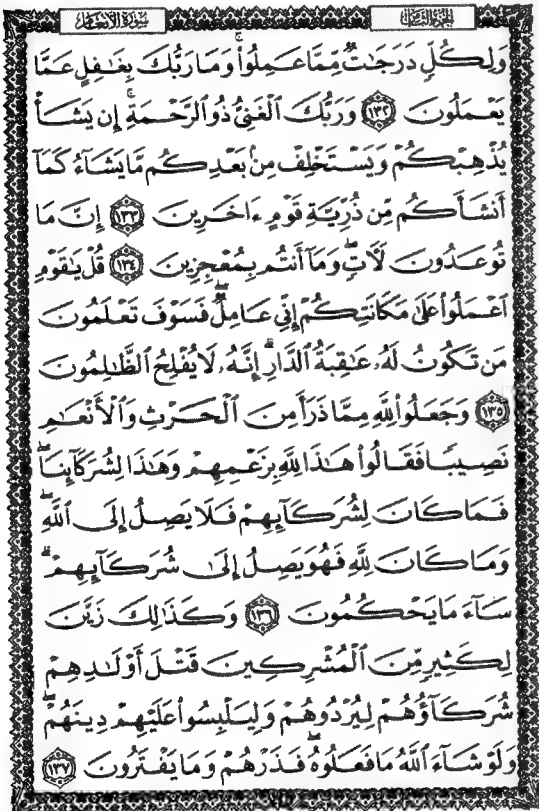 الجزء الثامن
سورة الأنعام
وَلِكُلٍّ دَرَجَٰتٌ مِّمَّا عَمِلُوا۟ ۚ وَمَا رَبُّكَ بِغَٰفِلٍ عَمَّا
يَعْمَلُونَ ١٣٢ وَرَبُّكَ الْغَنِيُّ ذُو الرَّحْمَةِ ۚ إِن يَشَأْ
يُذْهِبْكُمْ وَيَسْتَخْلِفْ مِنۢ بَعْدِكُم مَّا يَشَآءُ كَمَآ
أَنشَأَكُم مِّن ذُرِّيَّةِ قَوْمٍ ءَاخَرِينَ ١٣٣ إِنَّ مَا
تُوعَدُونَ لَءَاتٍ ۖ وَمَآ أَنتُم بِمُعْجِزِينَ ١٣٤ قُلْ يَٰقَوْمِ
اعْمَلُوا۟ عَلَىٰ مَكَانَتِكُمْ إِنِّي عَامِلٌ ۖ فَسَوْفَ تَعْلَمُونَ
مَن تَكُونُ لَهُۥ عَٰقِبَةُ الدَّارِ ۗ إِنَّهُۥ لَا يُفْلِحُ الظَّٰلِمُونَ
١٣٥ وَجَعَلُوا۟ لِلَّهِ مِمَّا ذَرَأَ مِنَ الْحَرْثِ وَالْأَنْعَٰمِ
نَصِيبًا فَقَالُوا۟ هَٰذَا لِلَّهِ بِزَعْمِهِمْ وَهَٰذَا لِشُرَكَآئِنَا ۖ
فَمَا كَانَ لِشُرَكَآئِهِمْ فَلَا يَصِلُ إِلَى اللَّهِ ۖ
وَمَا كَانَ لِلَّهِ فَهُوَ يَصِلُ إِلَىٰ شُرَكَآئِهِمْ ۗ
سَآءَ مَا يَحْكُمُونَ ١٣٦ وَكَذَٰلِكَ زَيَّنَ
لِكَثِيرٍ مِّنَ الْمُشْرِكِينَ قَتْلَ أَوْلَٰدِهِمْ
شُرَكَآؤُهُمْ لِيُرْدُوهُمْ وَلِيَلْبِسُوا۟ عَلَيْهِمْ دِينَهُمْ ۖ
وَلَوْ شَآءَ اللَّهُ مَا فَعَلُوهُ ۖ فَذَرْهُمْ وَمَا يَفْتَرُونَ ١٣٧